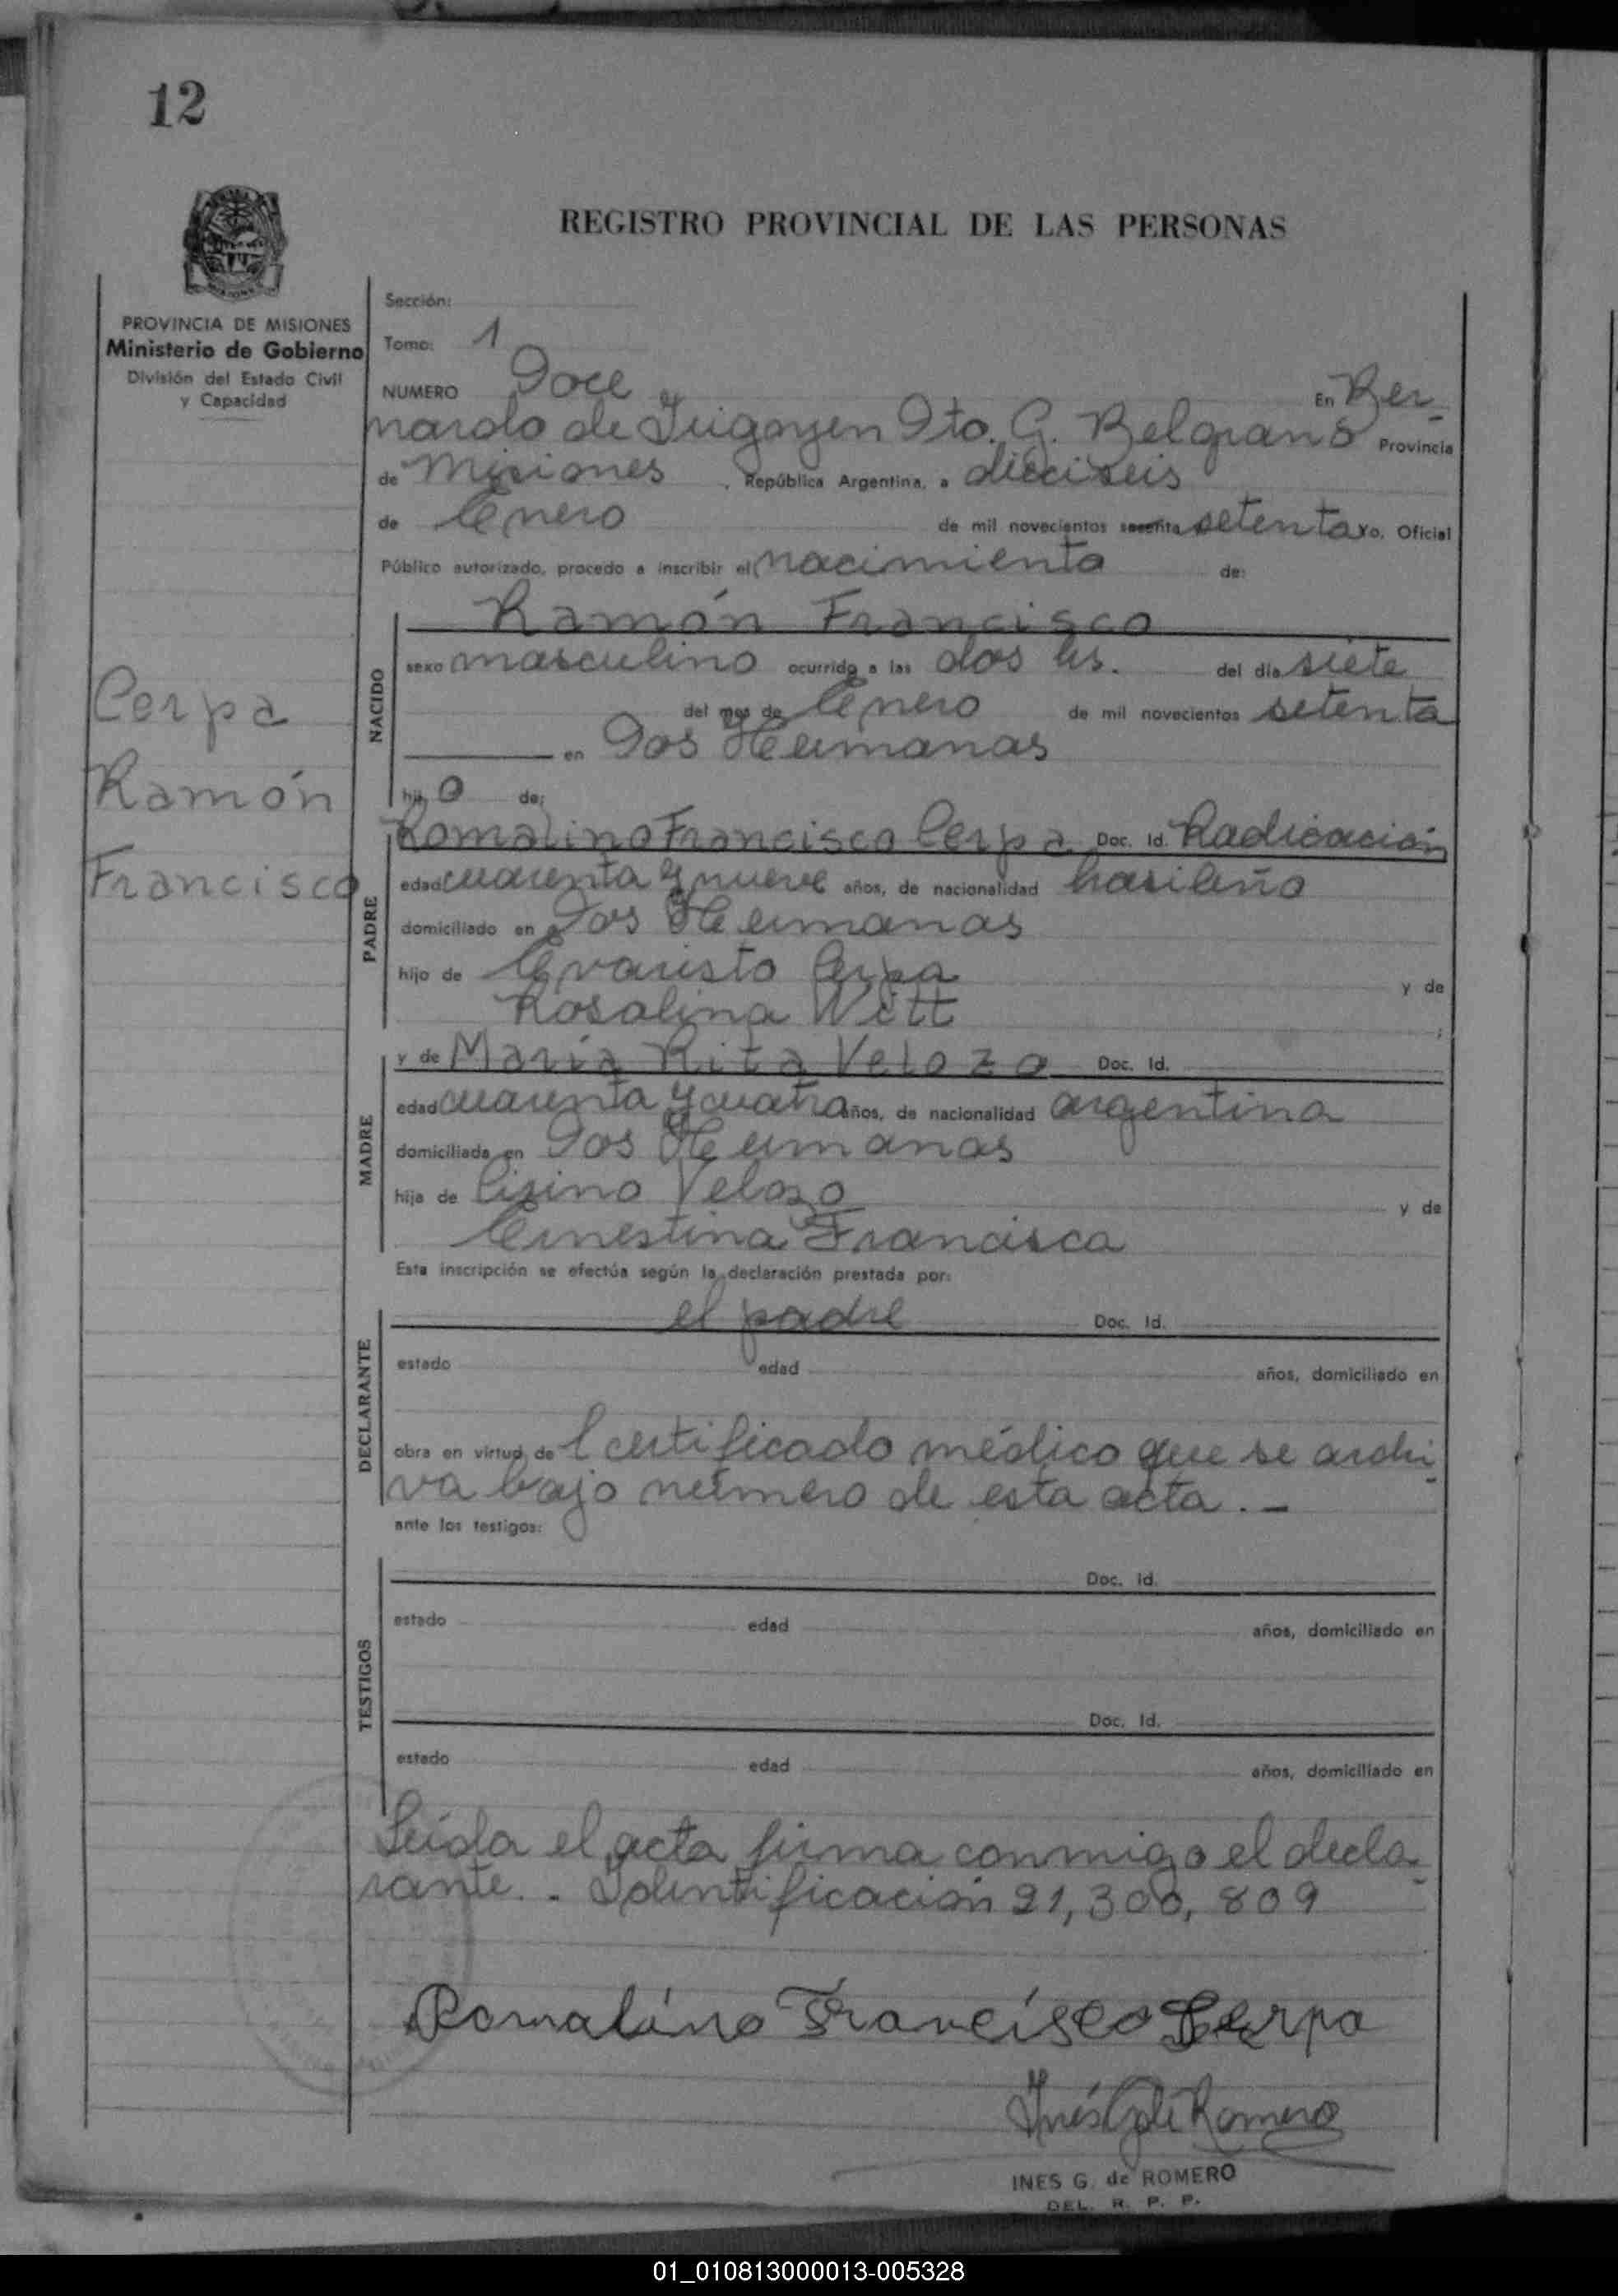 12
REGISTRO PROVINCIAL DE LAS PERSONAS
PROVINCIA DE MISIONES
Ministerio de Gobierno
División del Estado Civil
y Capacidad
Sección:
Tomo: 1
NUMERO Doce En Ber-
nardo de Irigoyen Dto. G. Belgrano Provincia
de Misiones, República Argentina, a dieciseis
de Enero de mil novecientos sesenta setenta Yo, Oficial
Público autorizado, procedo a inscribir el nacimiento de:
Cerpa
Ramón
Francisco
NACIDO
Ramón Francisco
sexo masculino ocurrido a las dos hs. del día siete
del mes de Enero de mil novecientos setenta
en Dos Hermanas
hijo de:
PADRE
Romalino Francisco Cerpa Doc. Id. Radicación
edad cuarenta y nueve años, de nacionalidad brasileño
domiciliado en Dos Hermanas
hijo de Evaristo Cerpa y de
Rosalina Witt ;
MADRE
y de María Rita Velozo Doc. Id.
edad cuarenta y cuatro años, de nacionalidad argentina
domiciliada en Dos Hermanas
hija de Cirino Velozo y de
Ernestina Francisca
Esta inscripción se efectúa según la declaración prestada por:
DECLARANTE
el padre Doc. Id.
estado edad años, domiciliado en
obra en virtud de l certificado médico que se archi-
va bajo número de esta acta. -
ante los testigos:
TESTIGOS
Doc. Id.
estado edad años, domiciliado en
Doc. Id.
estado edad años, domiciliado en
Leída el acta firma conmigo el decla-
rante. - Identificación 21,300,809
Romalino Francisco Serpa
Inés G de Romero
INES G. de ROMERO
DEL. R. P. P.
01_010813000013-005328